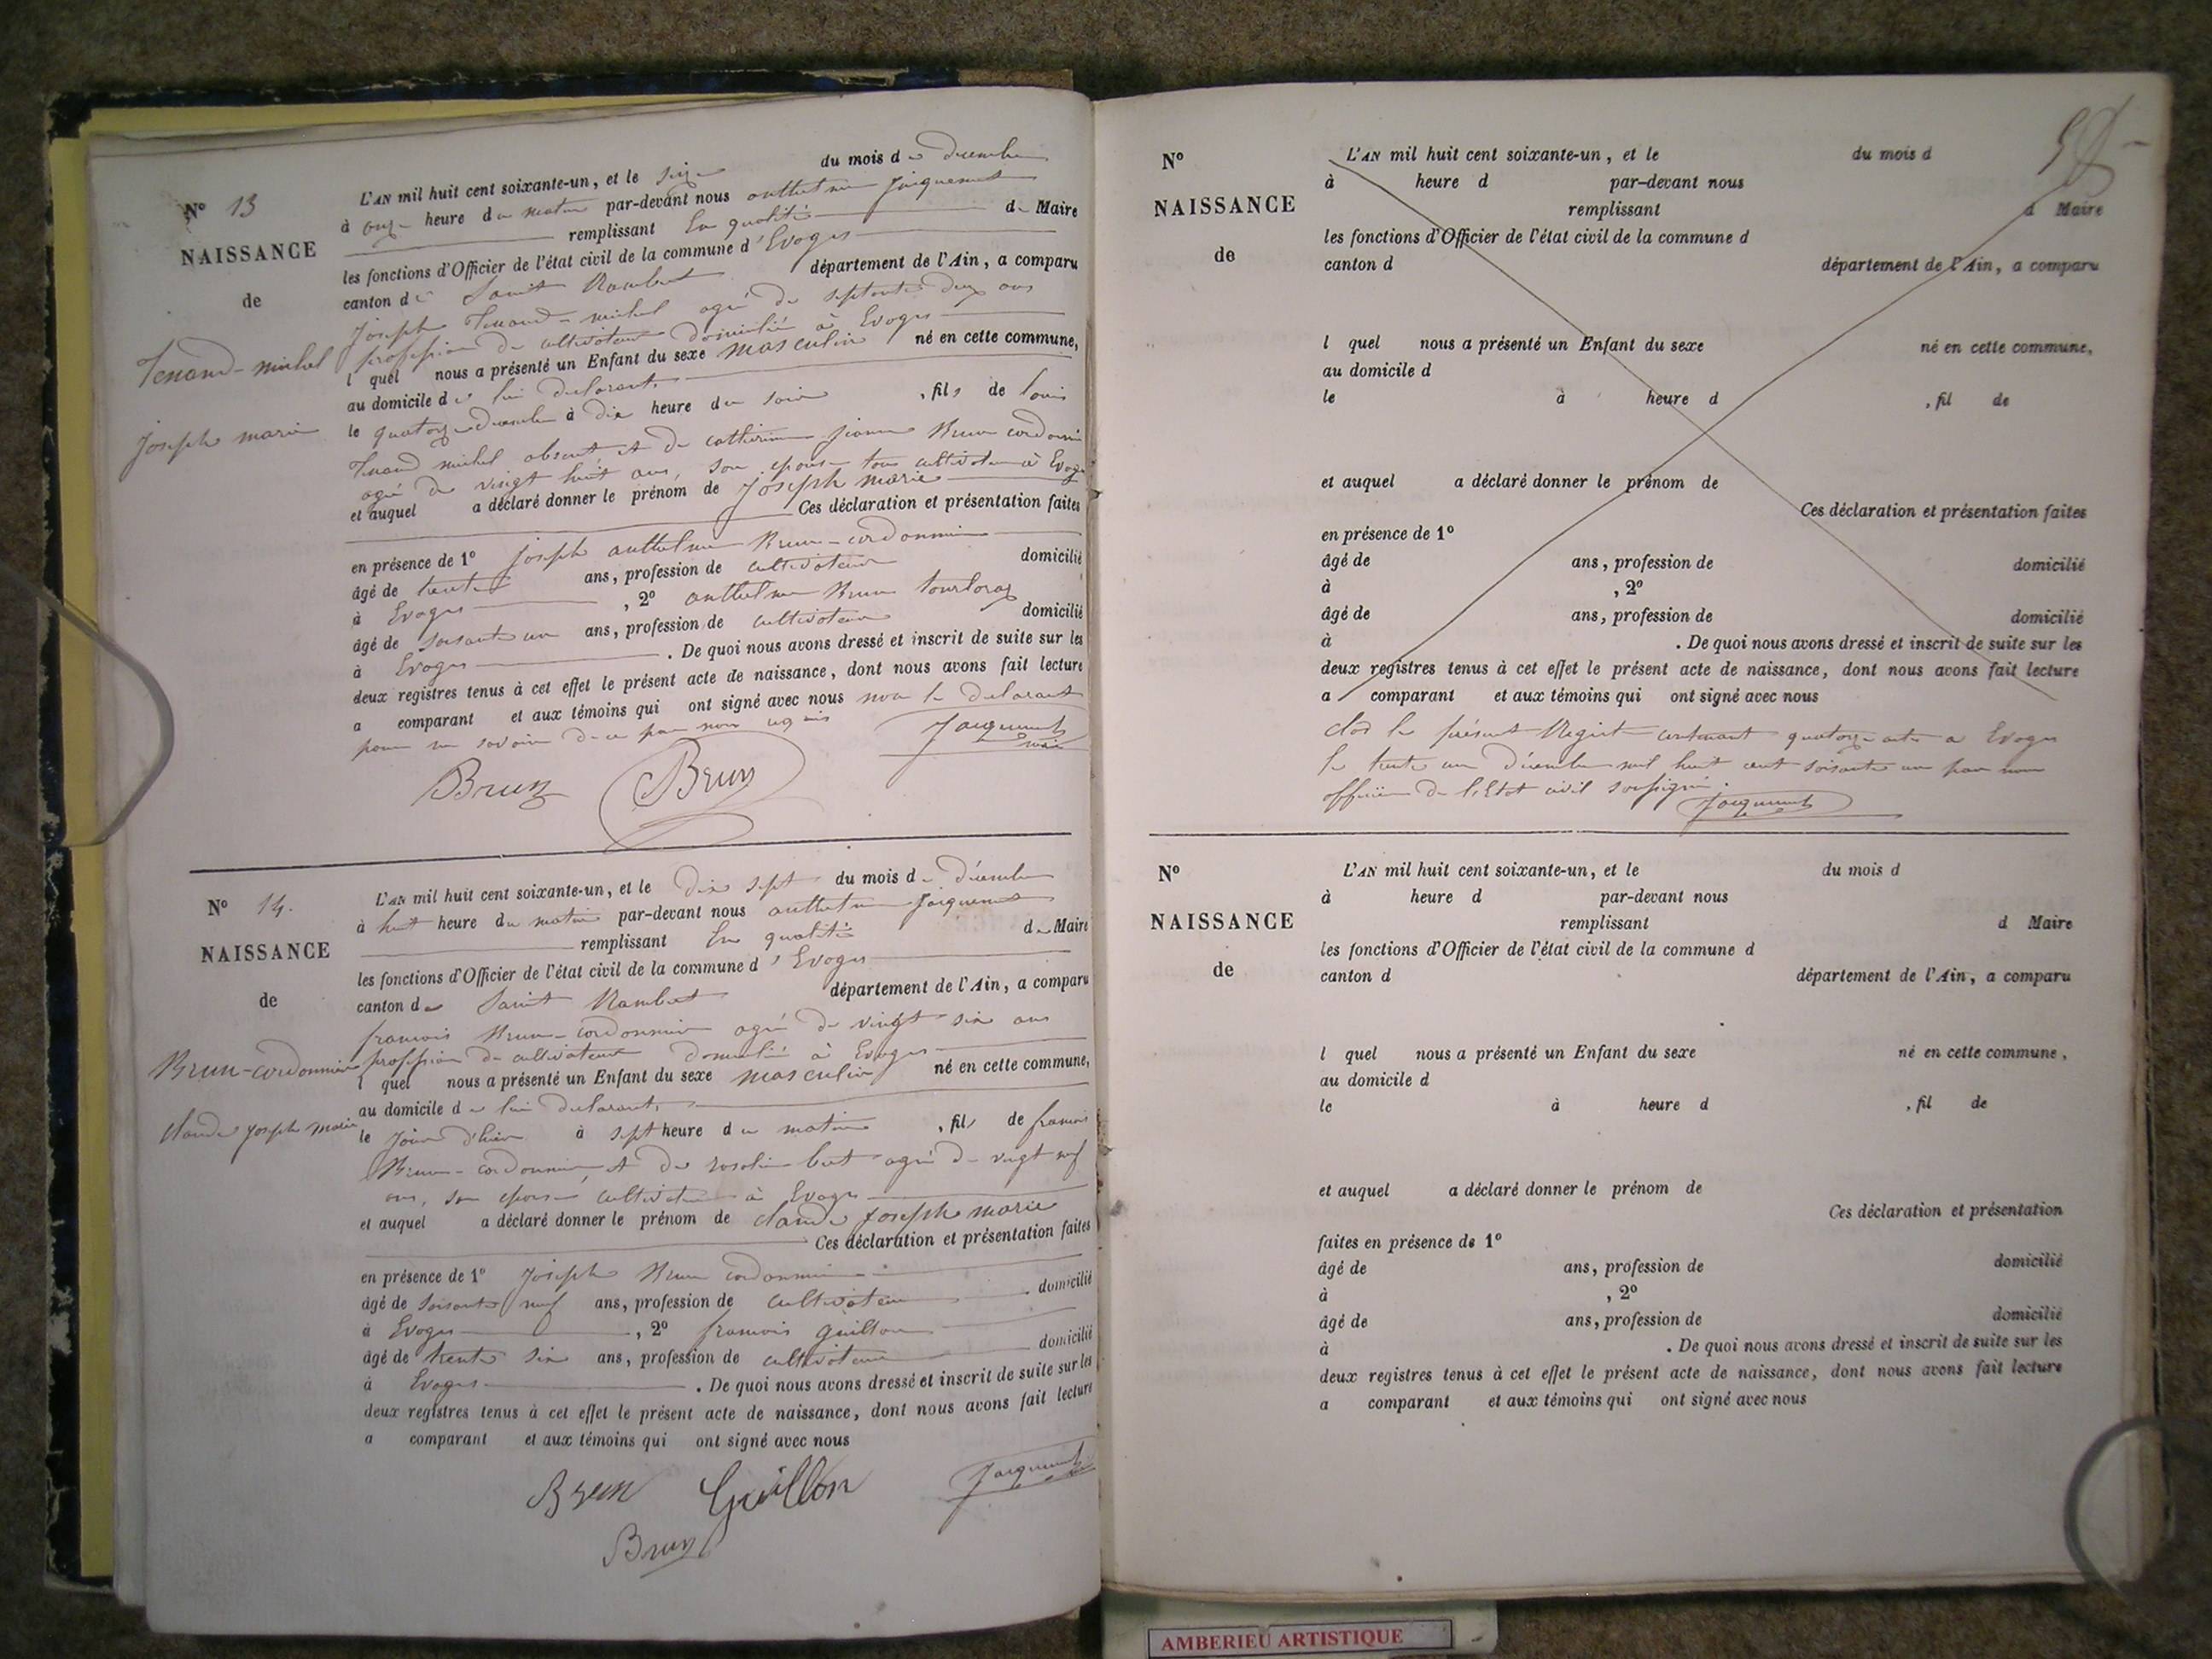 N° 13
NAISSANCE
de
Tenand-michel
Joseph marie
L'AN mil huit cent soixante-un, et le seize du mois de décembre
à onze heure du matin par-devant nous anthelme Jacquemet
remplissant En qualité de Maire
les fonctions d'Officier de l'état civil de la commune d'Evoges
canton de Saint Rambert département de l'Ain, a comparu
Joseph Tenand-michel agé de septante deux ans
profession de cultivateur domicilié à Evoges
l quel nous a présenté un Enfant du sexe masculin né en cette commune,
au domicile de lui déclarant,
le quatorze décembre à dix heure du soir, fils de louis
Tenand michel absent et de catherine Brun cordonnier
agé de vingt huit ans, son epouse tous cultivateur à Evoges
et auquel a déclaré donner le prénom de Joseph marie
Ces déclaration et présentation faites
en présence de 1° Joseph anthelme Brun-cordonnier
âgé de trente ans, profession de cultivateur domicilié
à Evoges, 2° anthelme Brun
âgé de soisante un ans, profession de cultivateur domicilié
à Evoges. De quoi nous avons dressé et inscrit de suite sur les
deux registres tenus à cet effet le présent acte de naissance, dont nous avons fait lecture
a comparant et aux témoins qui ont signé avec nous non le déclarant
pour ne savoir de ce par nous requis
Jacquemet
maire
Brun Brun
N° 14.
NAISSANCE
de
Brun-cordonnier
claude Joseph marie
L'AN mil huit cent soixante-un, et le dix sept du mois de décembre
à huit heure du matin par-devant nous anthelme Jacquemet
remplissant En qualité de Maire
les fonctions d'Officier de l'état civil de la commune d'Evoges
canton de Saint Rambert département de l'Ain, a comparu
francois Brun-cordonnier agé de vingt six ans
profession de cultivateur domicilié à Evoges
l quel nous a présenté un Enfant du sexe masculin né en cette commune,
au domicile de lui déclarant,
le jour d'hier à sept heure du matin, fils de francois
Brun-cordonnier, et de rosalie bert agé de vingt neuf
ans, son epouse, cultivateur à Evoges
et auquel a déclaré donner le prénom de claude Joseph marie
Ces déclaration et présentation faites
en présence de 1° Joseph Brun cordonnier
âgé de soisante neuf ans, profession de cultivateur domicilié
à Evoges, 2° francois Guillon
âgé de trente six ans, profession de cultivateur domicilié
à Evoges. De quoi nous avons dressé et inscrit de suite sur les
deux registres tenus à cet effet le présent acte de naissance, dont nous avons fait lecture
a comparant et aux témoins qui ont signé avec nous
Brun Guillon Jacquemet
Brun
N°
NAISSANCE
de
L'AN mil huit cent soixante-un, et le du mois d
à heure d par-devant nous
remplissant d Maire
les fonctions d'Officier de l'état civil de la commune d
canton d département de l'Ain, a comparu
l quel nous a présenté un Enfant du sexe né en cette commune,
au domicile d
le à heure d , fil de
et auquel a déclaré donner le prénom de
Ces déclaration et présentation faites
en présence de 1°
âgé de ans, profession de domicilié
à , 2°
âgé de ans, profession de domicilié
à . De quoi nous avons dressé et inscrit de suite sur les
deux registres tenus à cet effet le présent acte de naissance, dont nous avons fait lecture
a comparant et aux témoins qui ont signé avec nous
clos le présent Registre contenant quatorze actes a Evoges
le trente un décembre mil huit cent soisante un par nous
officier de l'Etat civil soussigné.
Jacquemet
N°
NAISSANCE
de
L'AN mil huit cent soixante-un, et le du mois d
à heure d par-devant nous
remplissant d Maire
les fonctions d'Officier de l'état civil de la commune d
canton d département de l'Ain, a comparu
l quel nous a présenté un Enfant du sexe né en cette commune,
au domicile d
le à heure d , fil de
et auquel a déclaré donner le prénom de
Ces déclaration et présentation
faites en présence de 1°
âgé de ans, profession de domicilié
à , 2°
âgé de ans, profession de domicilié
à . De quoi nous avons dressé et inscrit de suite sur les
deux registres tenus à cet effet le présent acte de naissance, dont nous avons fait lecture
a comparant et aux témoins qui ont signé avec nous
AMBERIEU ARTISTIQUE